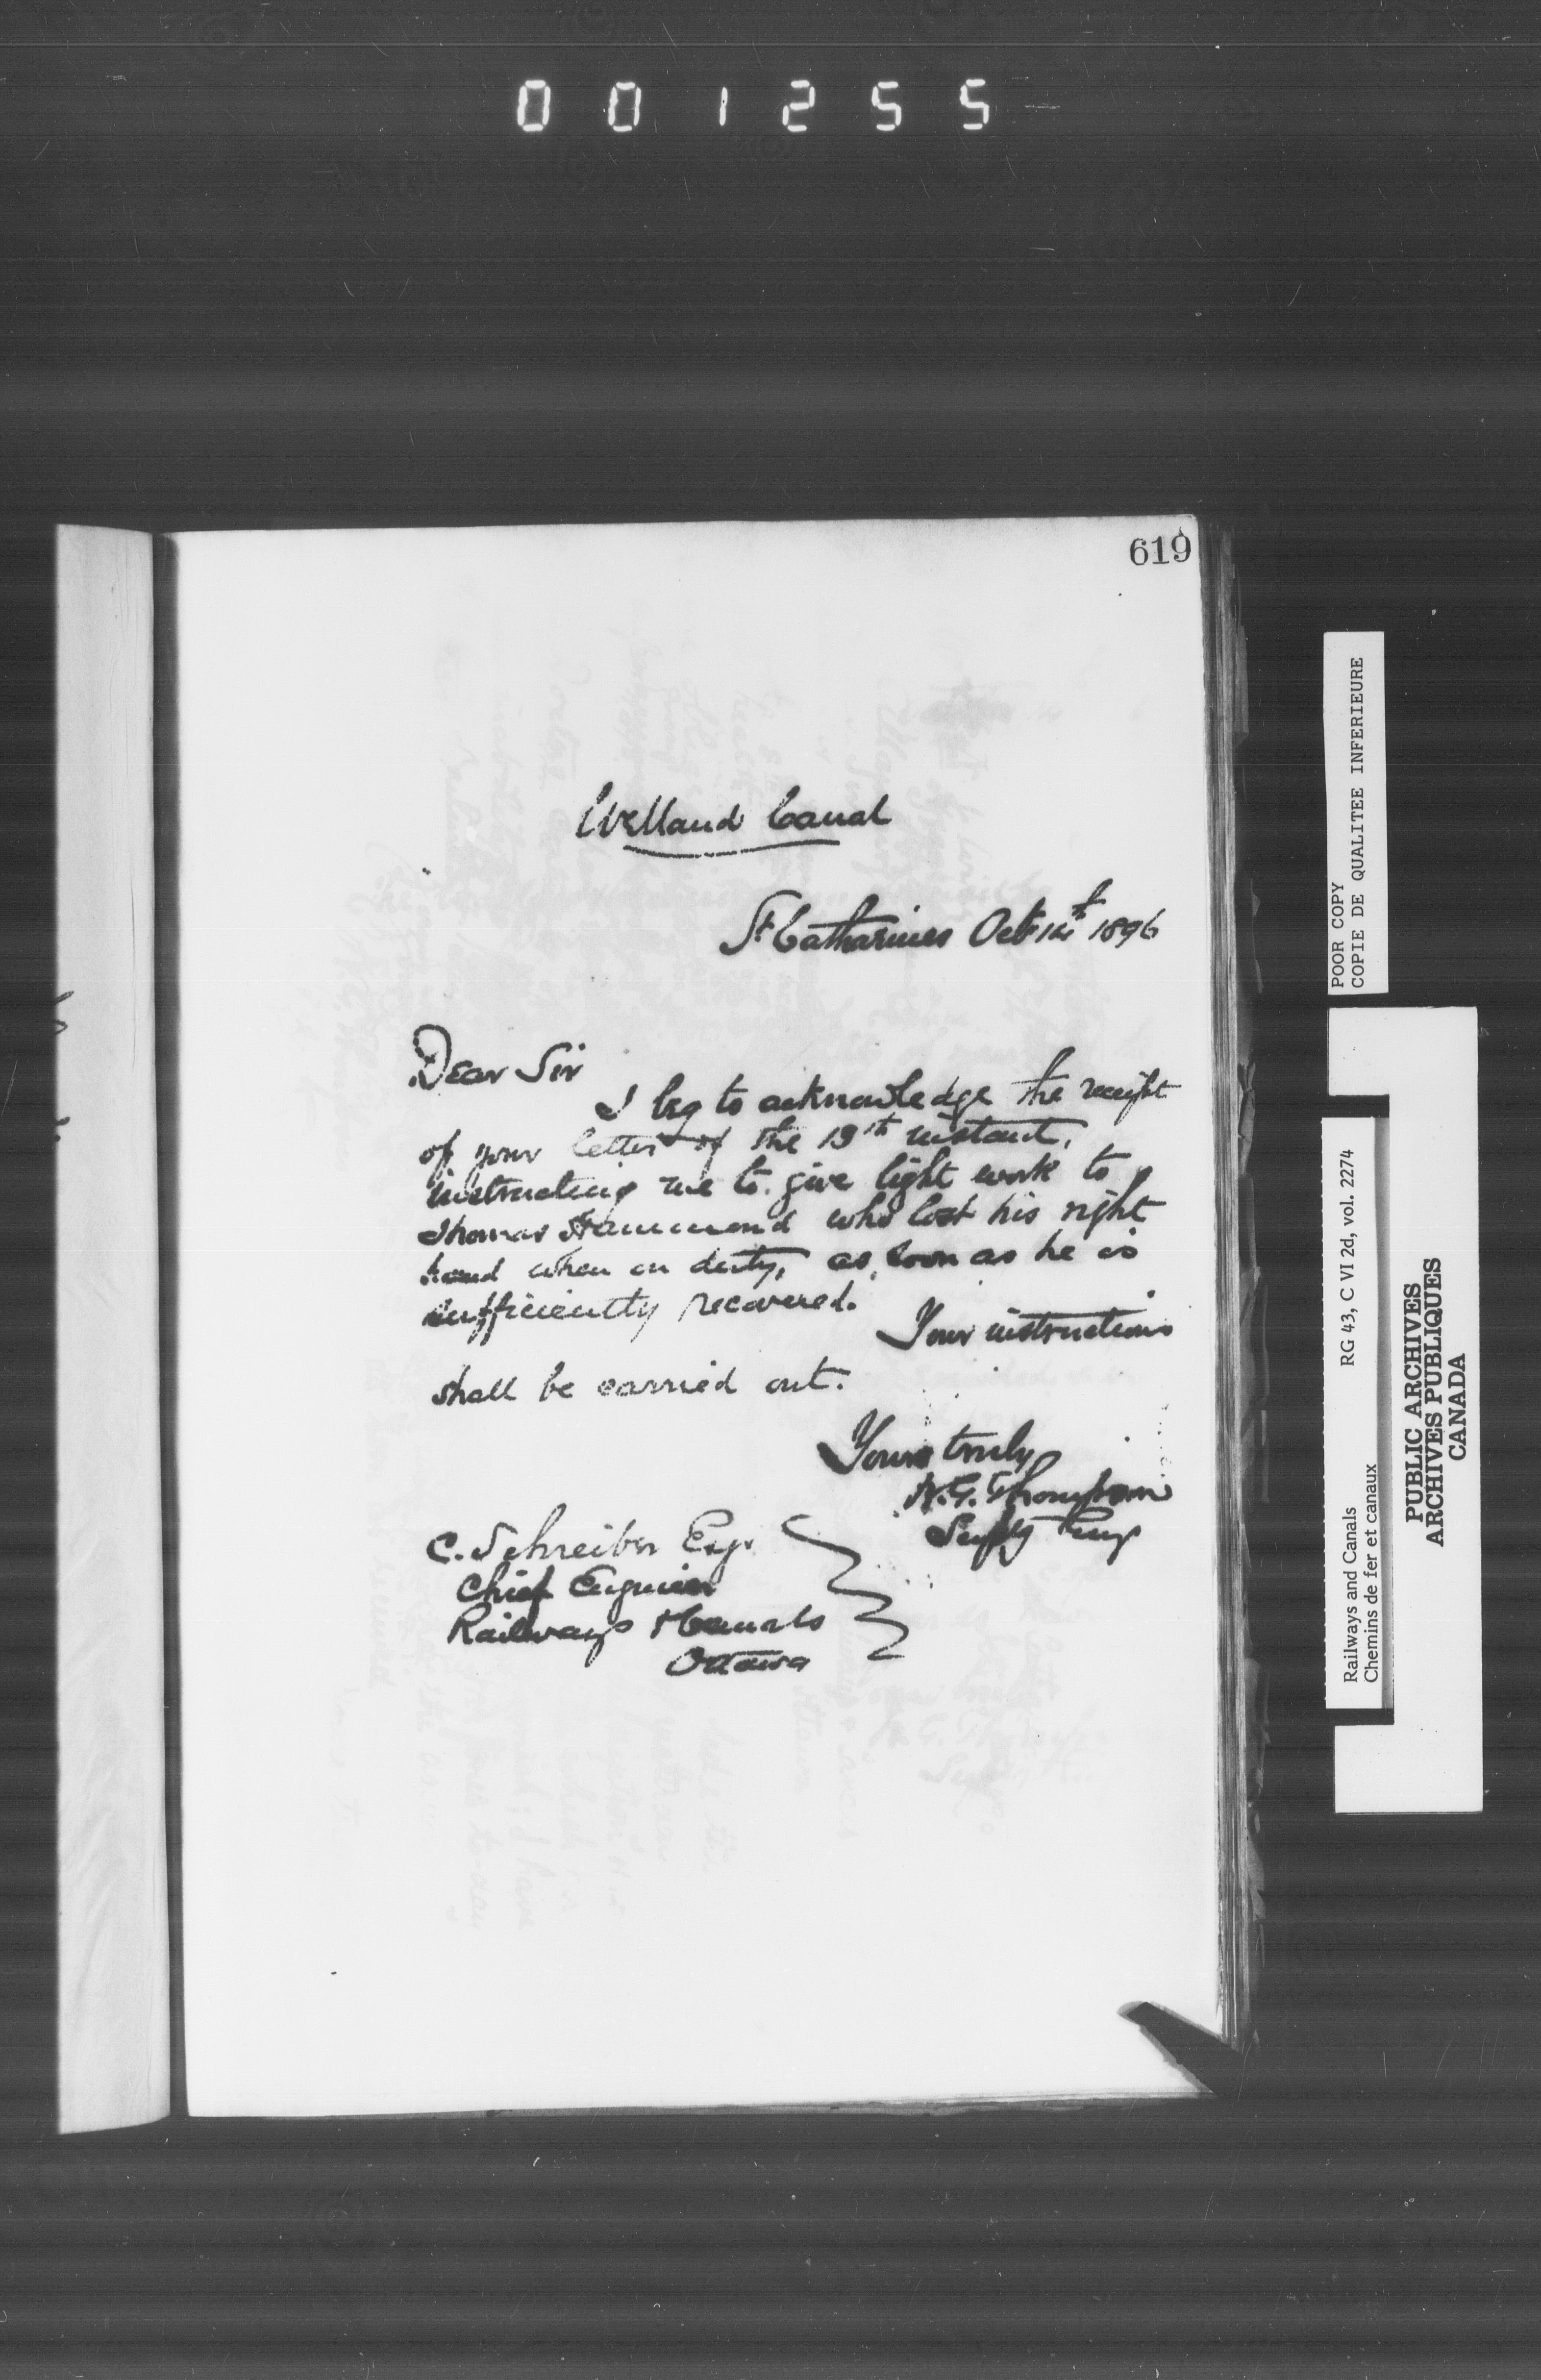 001255
619
Welland Canal
St. Catharines Oct 14th 1896
Dear Sir
I beg to acknowledge the receipt
of your letter of the 13th instant,
instructing me to give light work to
Thomas Hammond who lost his right
hand when on duty, as soon as he is
sufficiently recovered.
Your instructions
shall be carried out.
Yours truly
W.G. Thompson
Suptg Eng
C. Schreiber Esq.
Chief Engineer
Railways & Canals
Ottawa
POOR COPY
COPIE DE QUALITEE INFERIEURE
Railways and Canals RG 43, C VI 2d, vol. 2274
Chemins de fer et canaux
PUBLIC ARCHIVES
ARCHIVES PUBLIQUES
CANADA